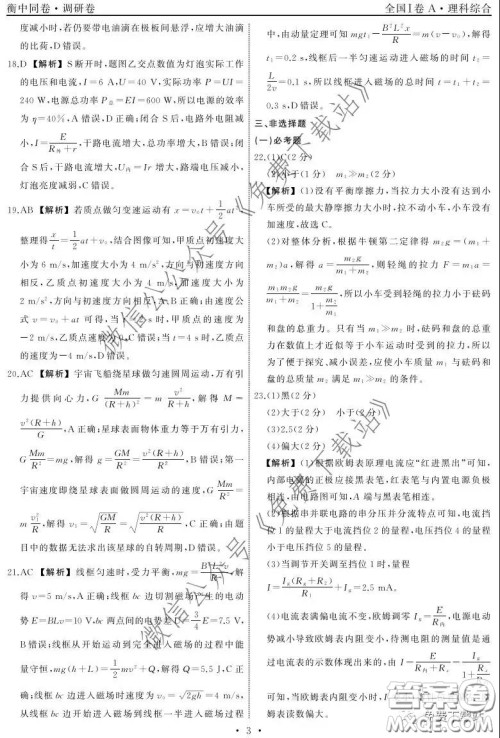 衡中同卷·调研卷
全国Ⅰ卷A·理科综合
度减小,若仍要带电油滴在极板间悬浮,应增大油滴
的比荷,D错误。
18.D 【解析】S断开时,题图乙交点数值为灯泡实际工作
的电压和电流,I=6 A,U=40 V,实际功率 P=UI=
240 W,电源总功率 P总=EI=600 W,所以电源的效率
为η=40%,A错误,D正确;闭合S后,电路外电阻减
小,I=E/(R外+r),干路电流增大,总功率增大,B错误;闭
合S后,干路电流增大,U内=Ir增大,路端电压减小,
灯泡亮度减弱,C错误。
19.AB 【解析】若质点做匀变速运动有 x=v₀t+1/2at²
整理得 x/t=1/2at+v₀,结合图像可知,甲质点初速度大
小为6 m/s,加速度大小为4 m/s²,方向与初速度方向
相反,乙质点初速度大小为2 m/s,加速度大小为
2 m/s²,方向与初速度方向相反,A、B正确;由速度公
式 v=v₀+at 可得,当
−2 m/s,乙质点的速度为
的速度为−4 m/s,D错误。
20.AC 【解析】宇宙飞船绕星球做匀速圆周运动,万有引
力提供向心力,G Mm/(R+h)²=m v²/(R+h),解得 M=
v²(R+h)/G,A正确;星球表面物体重力等于万有引力,
G Mm/R²=mg,解得 g=GM/R²=v²(R+h)/R²,B错误;第一
宇宙速度即绕星球表面做圆周运动的速度,G Mm/R²=
m v₁²/R,解得 v₁=√(GM/R)=√(v²(R+h)/R),C正确;由题
目中的数据无法求出该星球的自转周期,D错误。
21.AC 【解析】线框匀速时,受力平衡,mg=B²L²v/R,解得
v=5 m/s,A正确;线框 bc 边切割磁场产生的电动
势 E=BLv=10 V,bc 两点间的电势差U=3/4E=7.5 V,
B错误;线框从开始运动到完全进入磁场的过程中能
量守恒,mg(h+L)=1/2mv²+Q,解得Q=5.5 J,C正
确;线框 bc 边进入磁场时速度为 v₀=√2gh=4 m/s,
从线框 bc 边进入磁场到线框一半进入磁场过程
中,由动量定理可知 mgt₁−B²L²x/R=m(v−v₀),解得
t₁=0.2 s,线框后一半匀速运动进入磁场的时间 t₂=
L/2v=0.1 s,所以线框进入磁场的总时间 t=t₁+t₂=
0.3 s,D错误。
三、非选择题
(一)必考题
22.(1)C(2分)
(2)小于(2分) m₁≫m₂(2分)
【解析】(1)没有平衡摩擦力,当拉力大小没有达到小
车所受的最大静摩擦力大小时,拉不动小车,小车没有
加速度,故选C。
(2)对整体分析,根据牛顿第二定律得 m₂g=(m₁+
m₂)a,解得 a=m₂g/(m₁+m₂),则轻绳的拉力 F=m₁a=
m₁m₂g/(m₁+m₂)=m₂g/(1+m₂/m₁),所以小车受到轻绳的力小于砝码
和盘的总重力。只有当 m₁≫m₂ 时,砝码和盘的总重
力在数值上才近似等于小车运动时受到的拉力。所以
为了便于探究、减小误差,应使小车质量 m₁ 与砝码和
盘的总质量 m₂ 满足 m₁≫m₂ 的条件。
23.(1)黑(2分)
(2)大于(2分) 小于(2分)
(3)2.5(2分)
(4)偏大(2分)
【解析】(1)根据欧姆表原理电流应“红进黑出”可知,
内部电源的正极应接黑表笔,红表笔与内置电源负极
相连,由电路图可知,A端与黑表笔相连。
(2)根据串并联电路的串分压并分流特点可知,电流挡
位1的量程大于电流挡位2的量程,电压挡位4的量
程小于电压挡位5的量程。
(3)当调节开关S到电流挡位1时,量程
I=Ig(Rg+R2)/R1+Ig=2.5 mA。
(4)电流表满偏电流不变,欧姆调零 Ig=E/R内,电源电动
势减小导致欧姆表内阻变小,待测电阻的测量值是通
过电流表的示数体现出来的,由
知,当欧姆表内阻变小时,I
姆表读数偏大。
·3·
微信公众号《免费下载站》
微信公众号《免费下载站》